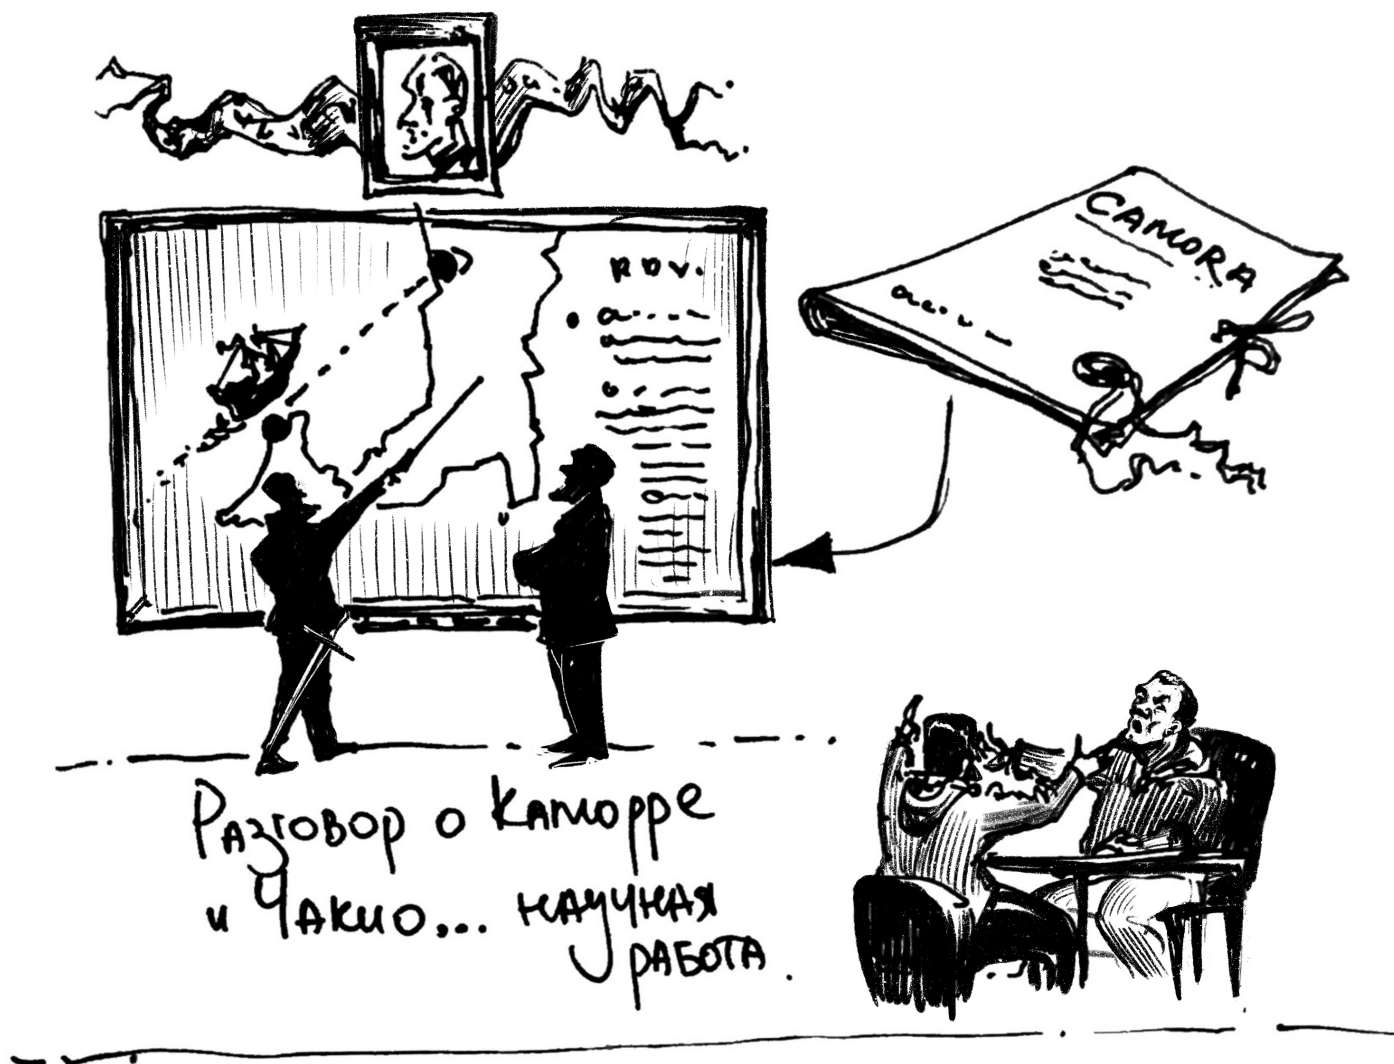 CAMORA
Разговор о Каморре
и Чакио... научная
работа.